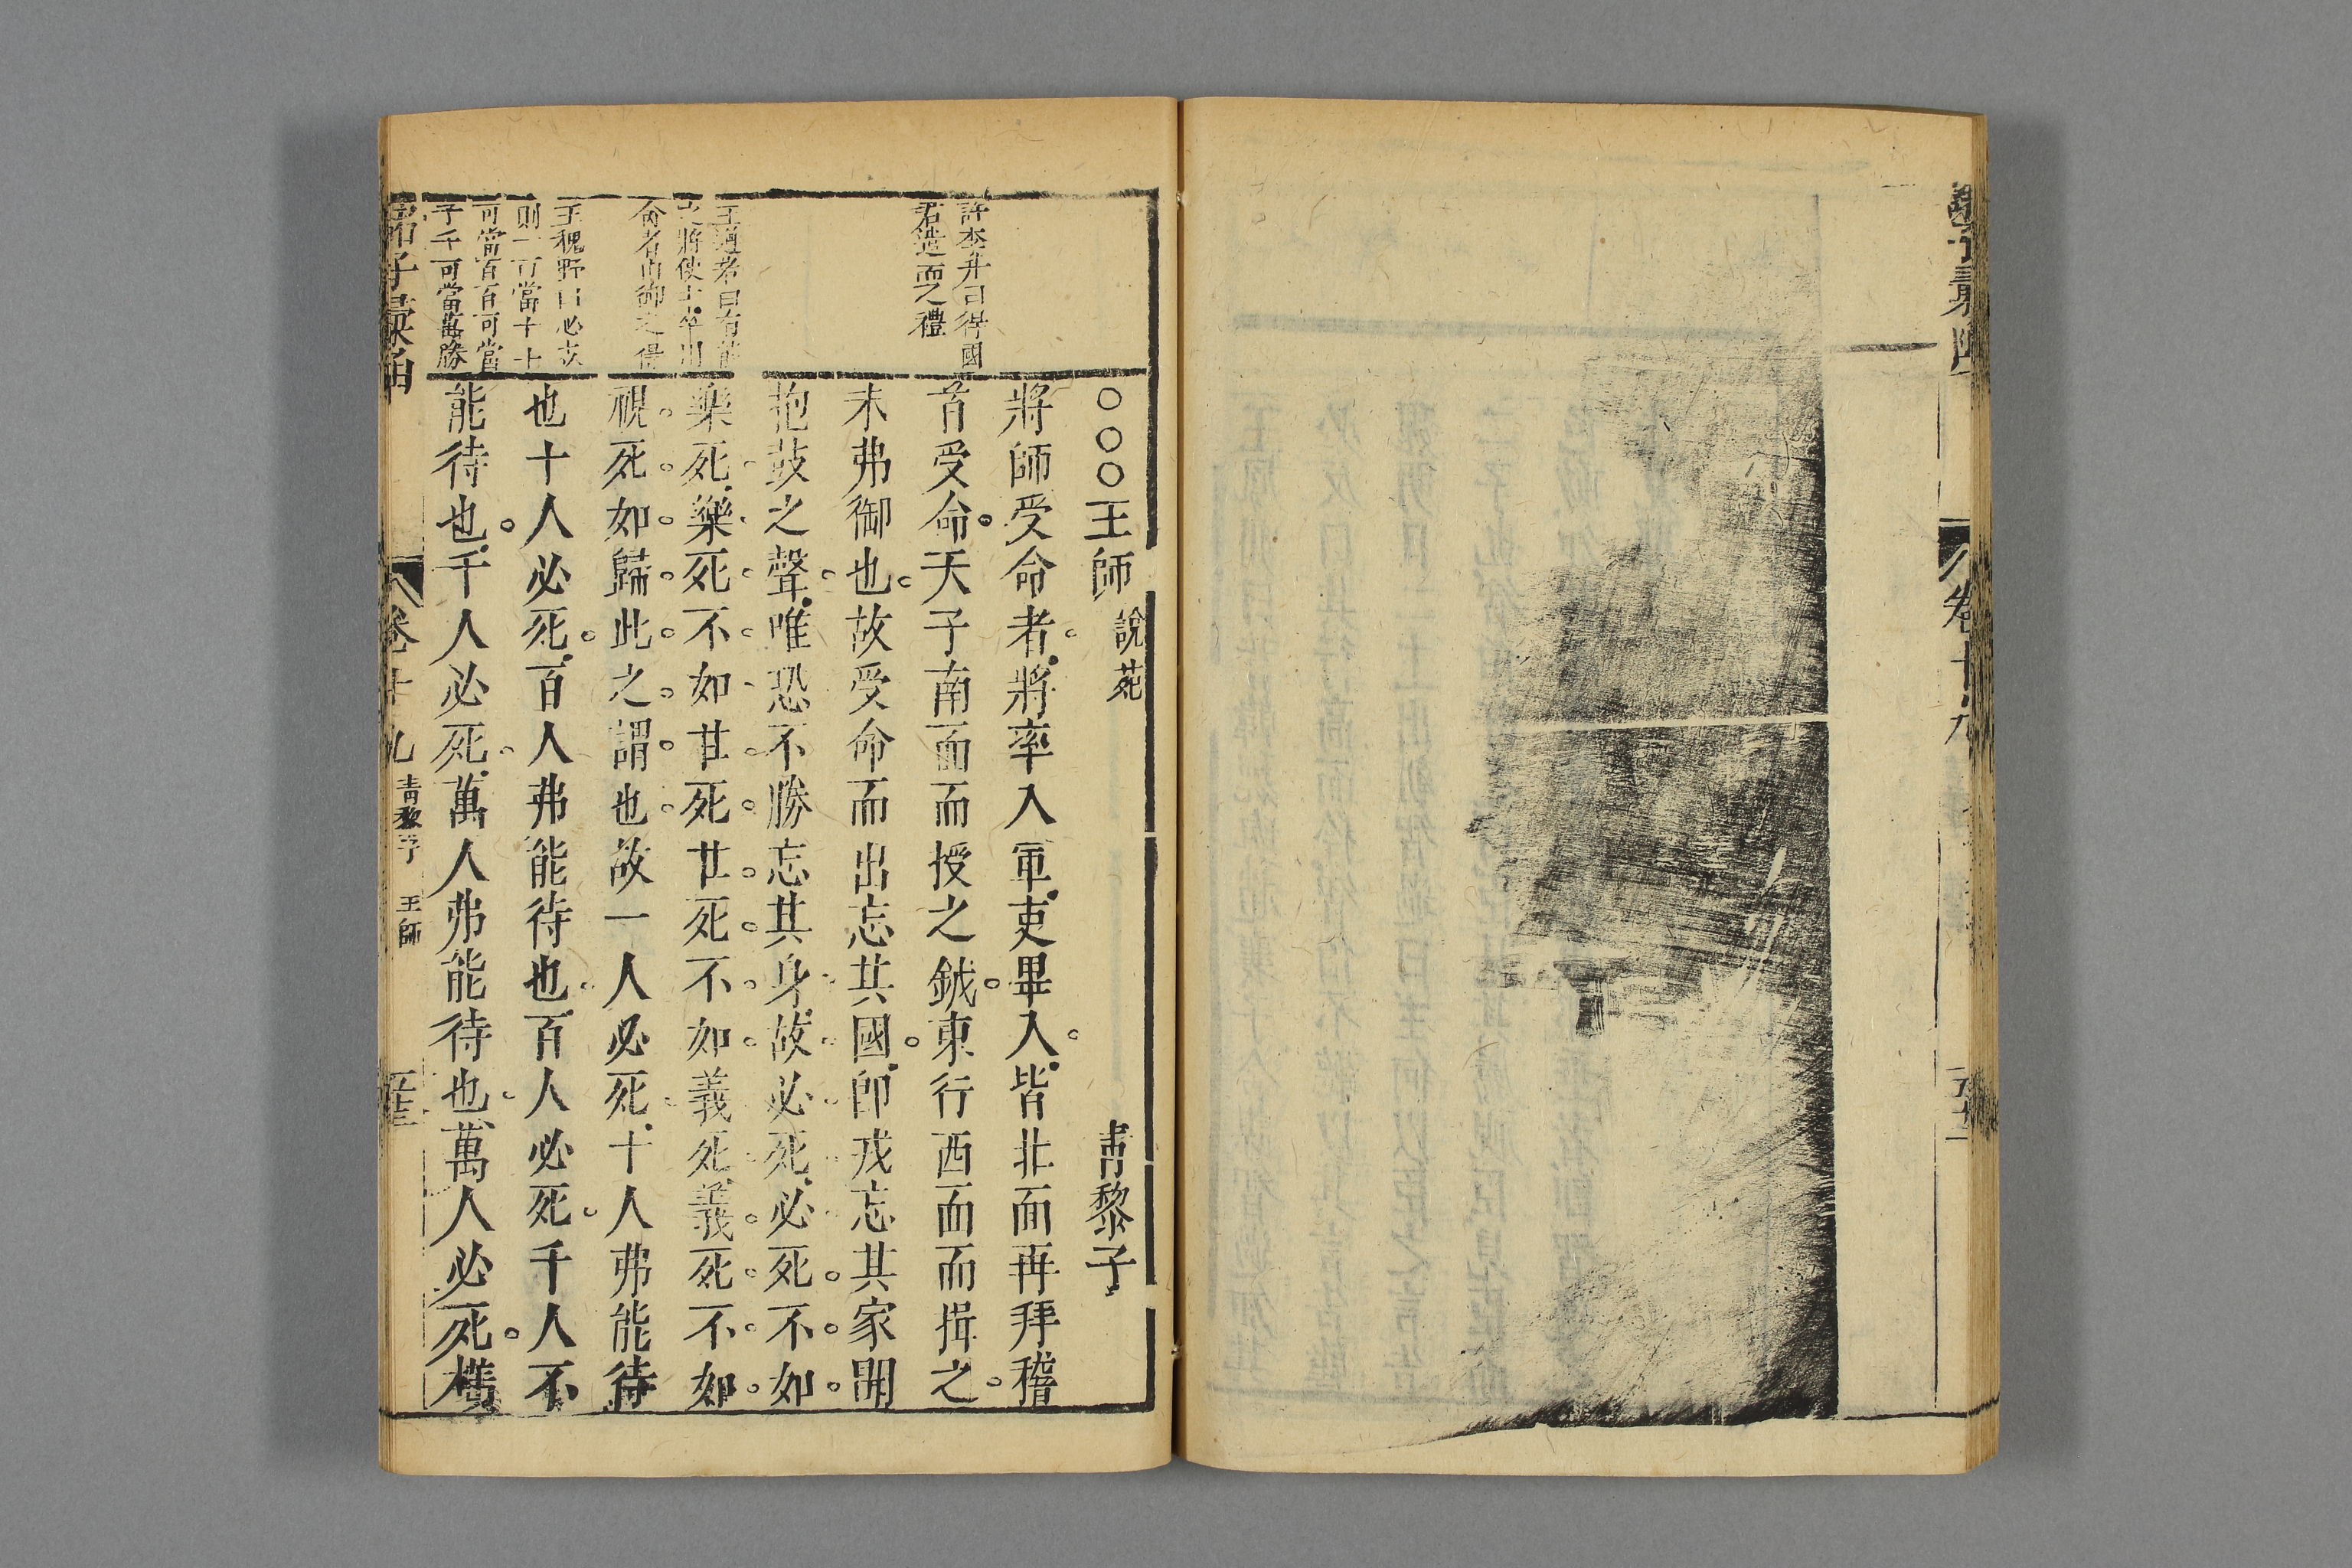 卷十九
○○○王師 說苑 青黎子
將師受命者將率入軍吏畢入皆北面再拜稽
首受命天子南面而授之鉞東行西面而揖之
未弗御也故受命而出忘其國即戎忘其家聞
抱鼓之聲唯恐不勝忘其身故必死必死不如
樂死樂死不如甘死甘死不如義死義死不如
視死如歸此之謂也故一人必死十人弗能待
也十人必死百人弗能待也百人必死千人不
能待也千人必死萬人弗能待也萬人必死橫
君造而之禮
王道者曰有能
之將使士卒出
則一可當十十
可當百百可當
子千可當萬勝
諸子彙函
卷十九 青黎子 王師